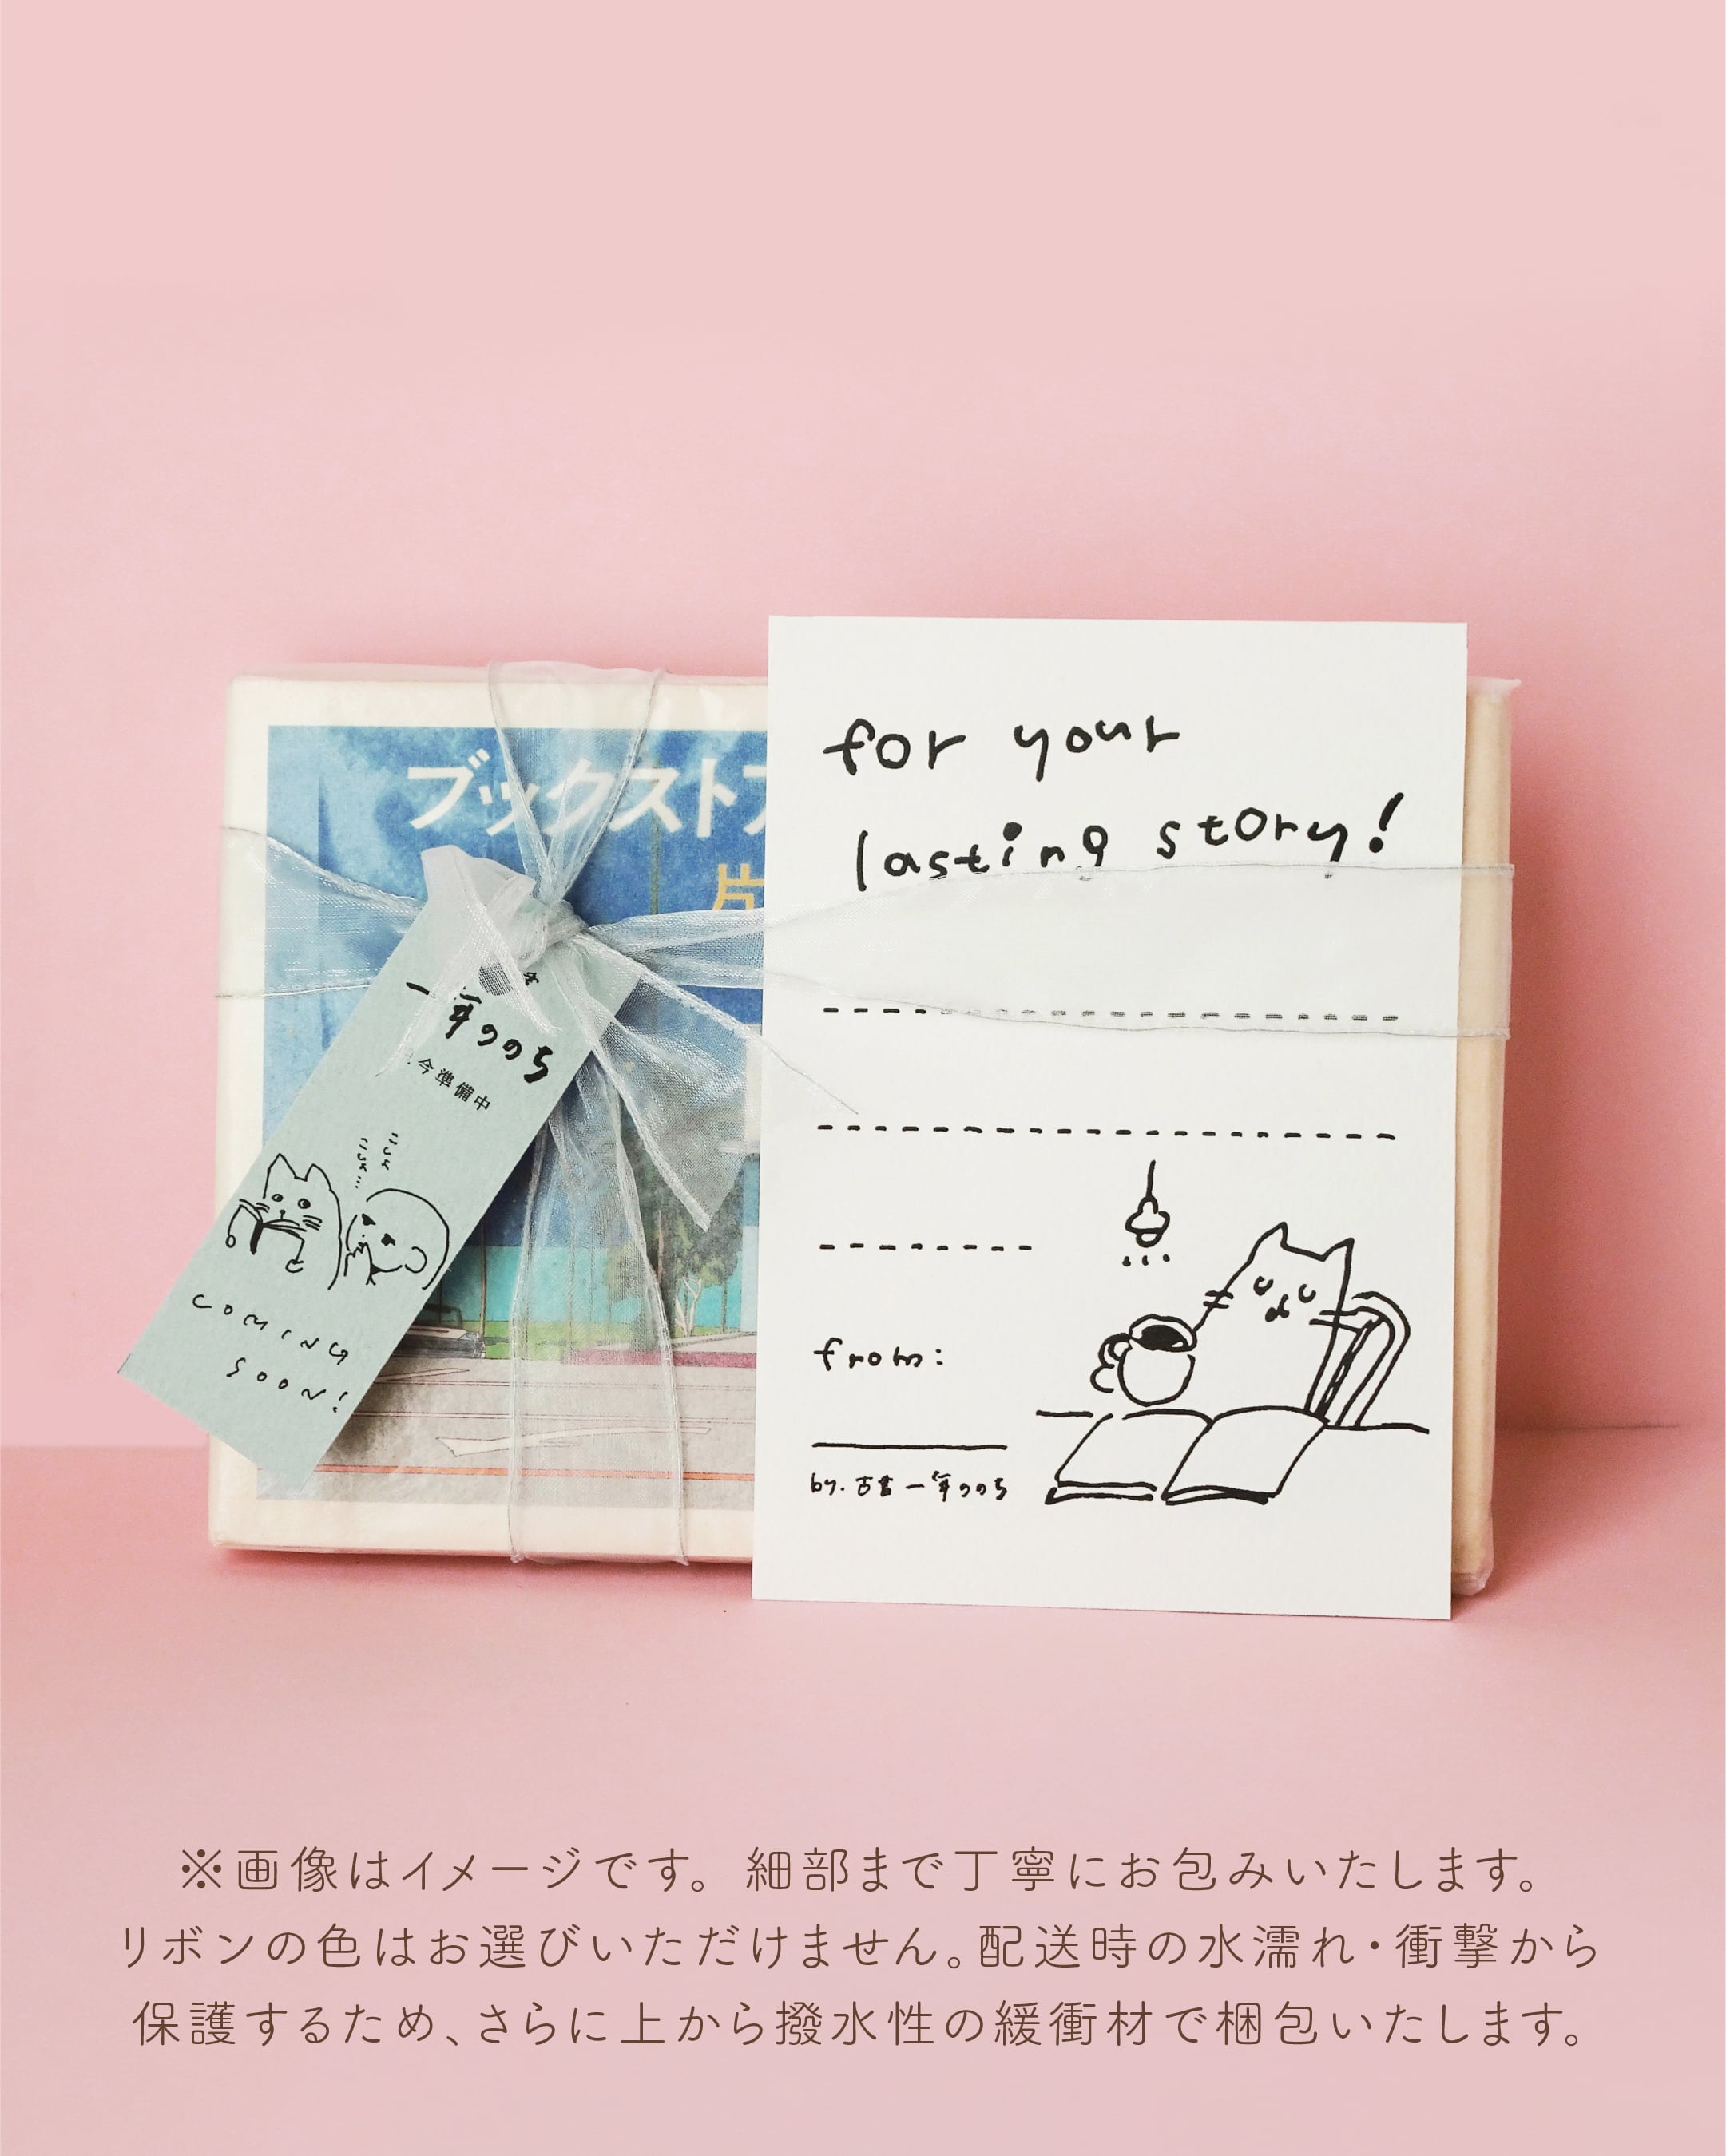 ブックストア
片
一年ののち
今準備中
こしょ
こしょ…
COMING
SOON!
for your
lasting story!
from:
by. 古書 一年ののち
※画像はイメージです。細部まで丁寧にお包みいたします。
リボンの色はお選びいただけません。配送時の水濡れ・衝撃から
保護するため、さらに上から撥水性の緩衝材で梱包いたします。